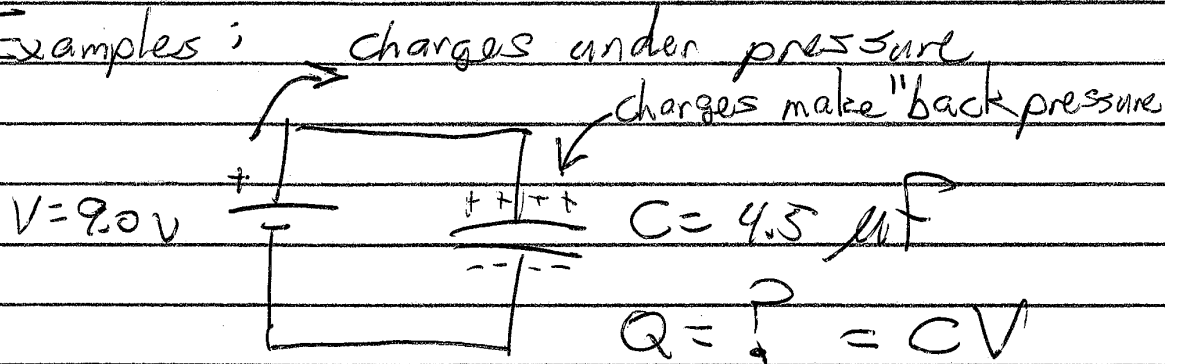 Examples; charges under pressure
charges make "back pressure
+
V=9.0v ++++ C= 4.5 μF
-
-----
Q= ? = CV